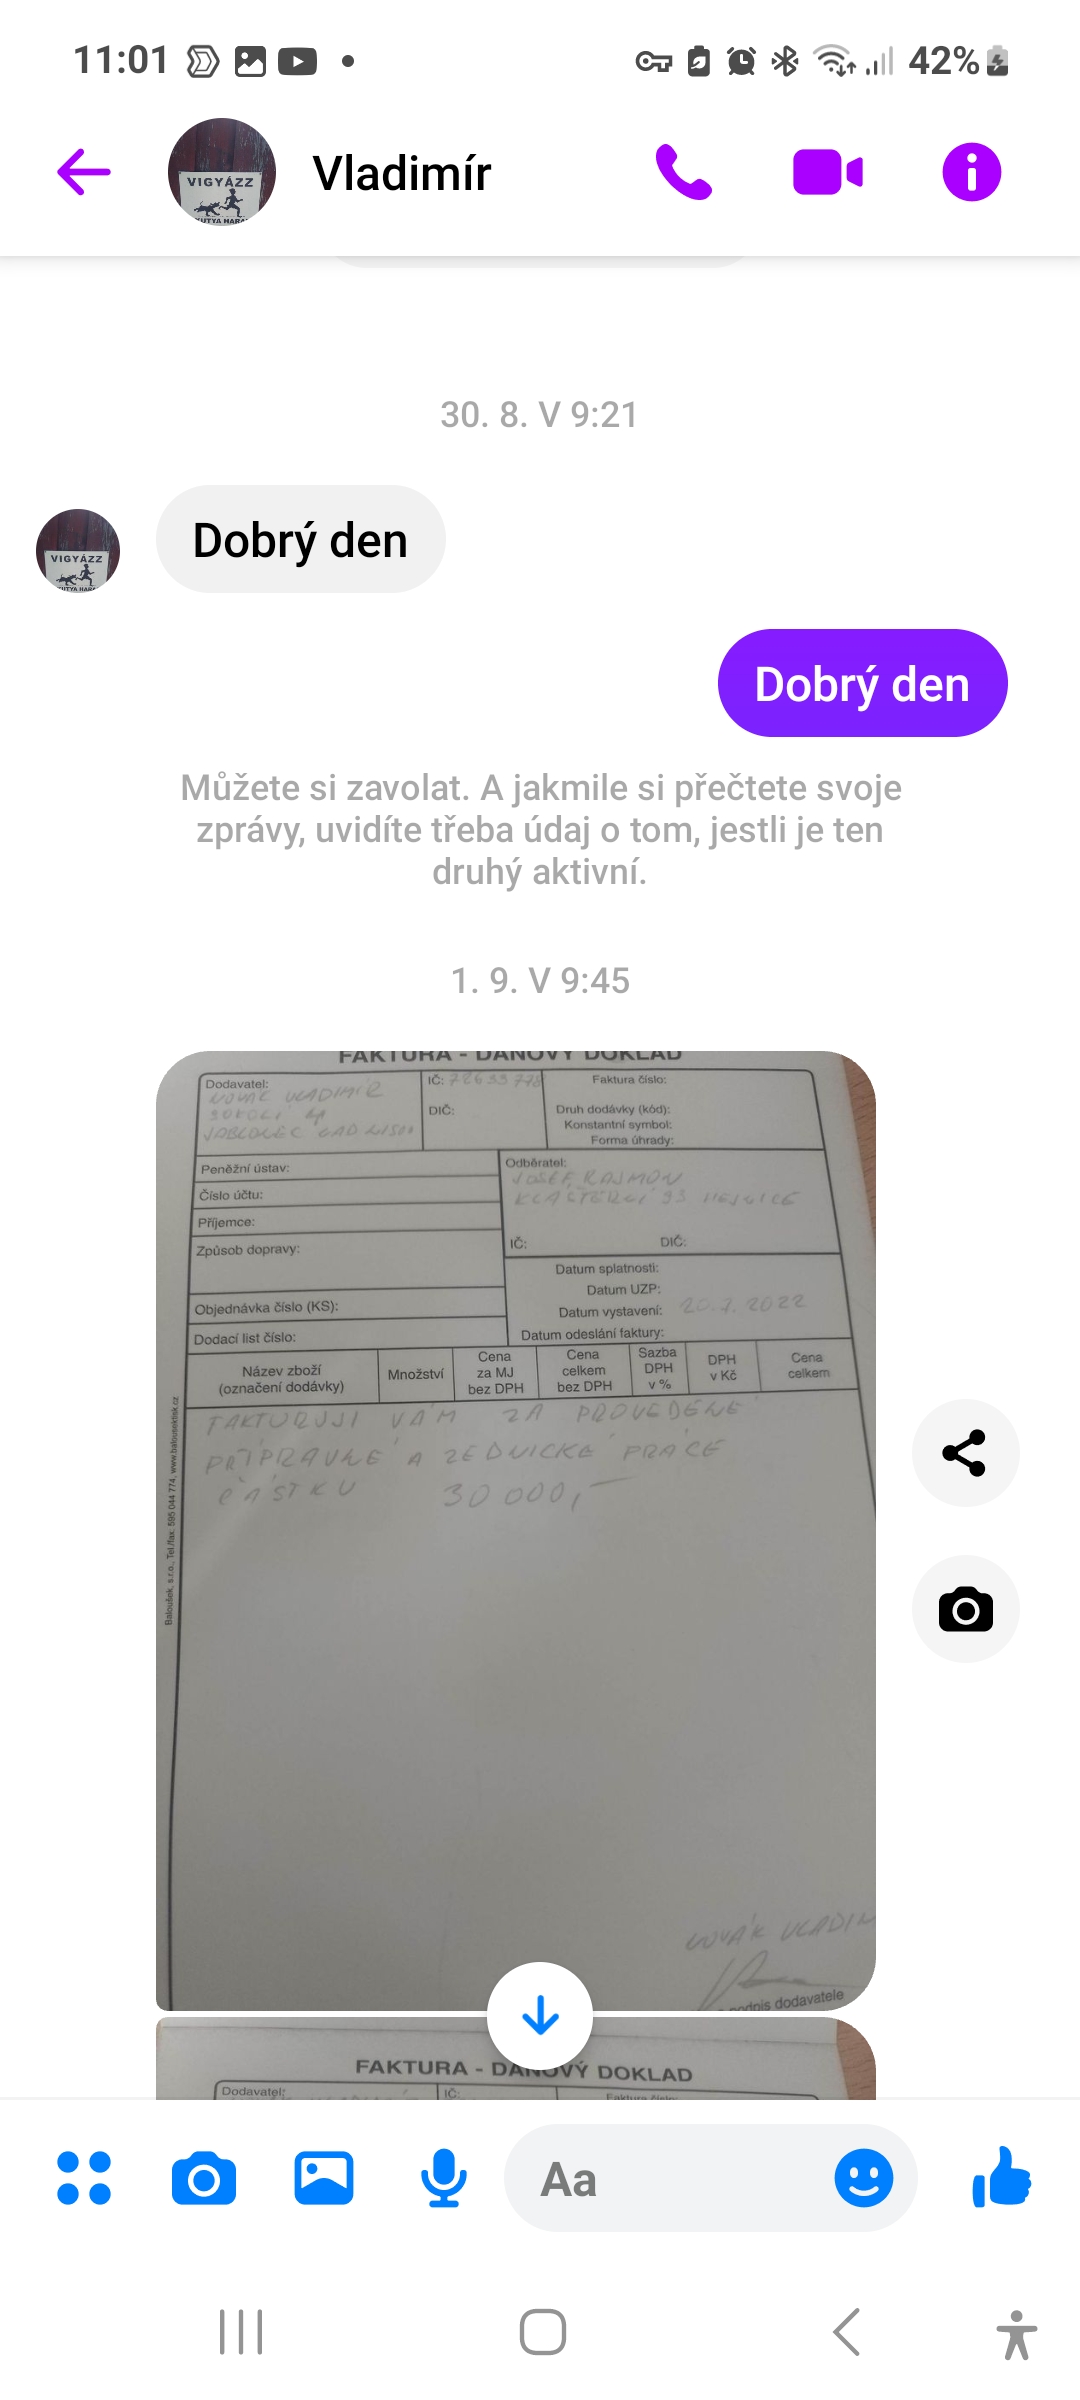 11:01
42%
Vladimír
VIGYÁZZ
30. 8. V 9:21
VIGYÁZZ
Dobrý den
Dobrý den
Můžete si zavolat. A jakmile si přečtete svoje
zprávy, uvidíte třeba údaj o tom, jestli je ten
druhý aktivní.
1. 9. V 9:45
FAKTURA - DAŇOVÝ DOKLAD
Dodavatel:
NOVÁK VLADIMÍR
IČ:
DIČ:
Faktura číslo:
Druh dodávky (kód):
Konstantní symbol:
Forma úhrady:
Peněžní ústav:
Číslo účtu:
Příjemce:
Způsob dopravy:
Objednávka číslo (KS):
Dodací list číslo:
Odběratel:
JOSEF RAJMON
KLÁŠTERNÍ 93 HEJNICE
IČ: DIČ:
Datum splatnosti:
Datum UZP:
Datum vystavení: 20.7.2022
Datum odeslání faktury:
Název zboží
(označení dodávky)
Množství
Cena
za MJ
bez DPH
Cena
celkem
bez DPH
Sazba
DPH
v %
DPH
v Kč
Cena
celkem
FAKTURUJI VÁM ZA PROVEDENÉ
PŘÍPRAVNÉ A ZEDNICKÉ PRÁCE
ČÁSTKU 30 000,-
Baloušek, s.r.o., Tel./fax: 595 044 774, www.balousektisk.cz
NOVÁK VLADIM
podpis dodavatele
FAKTURA - DAŇOVÝ DOKLAD
Dodavatel:
IČ:
Faktura číslo:
Aa